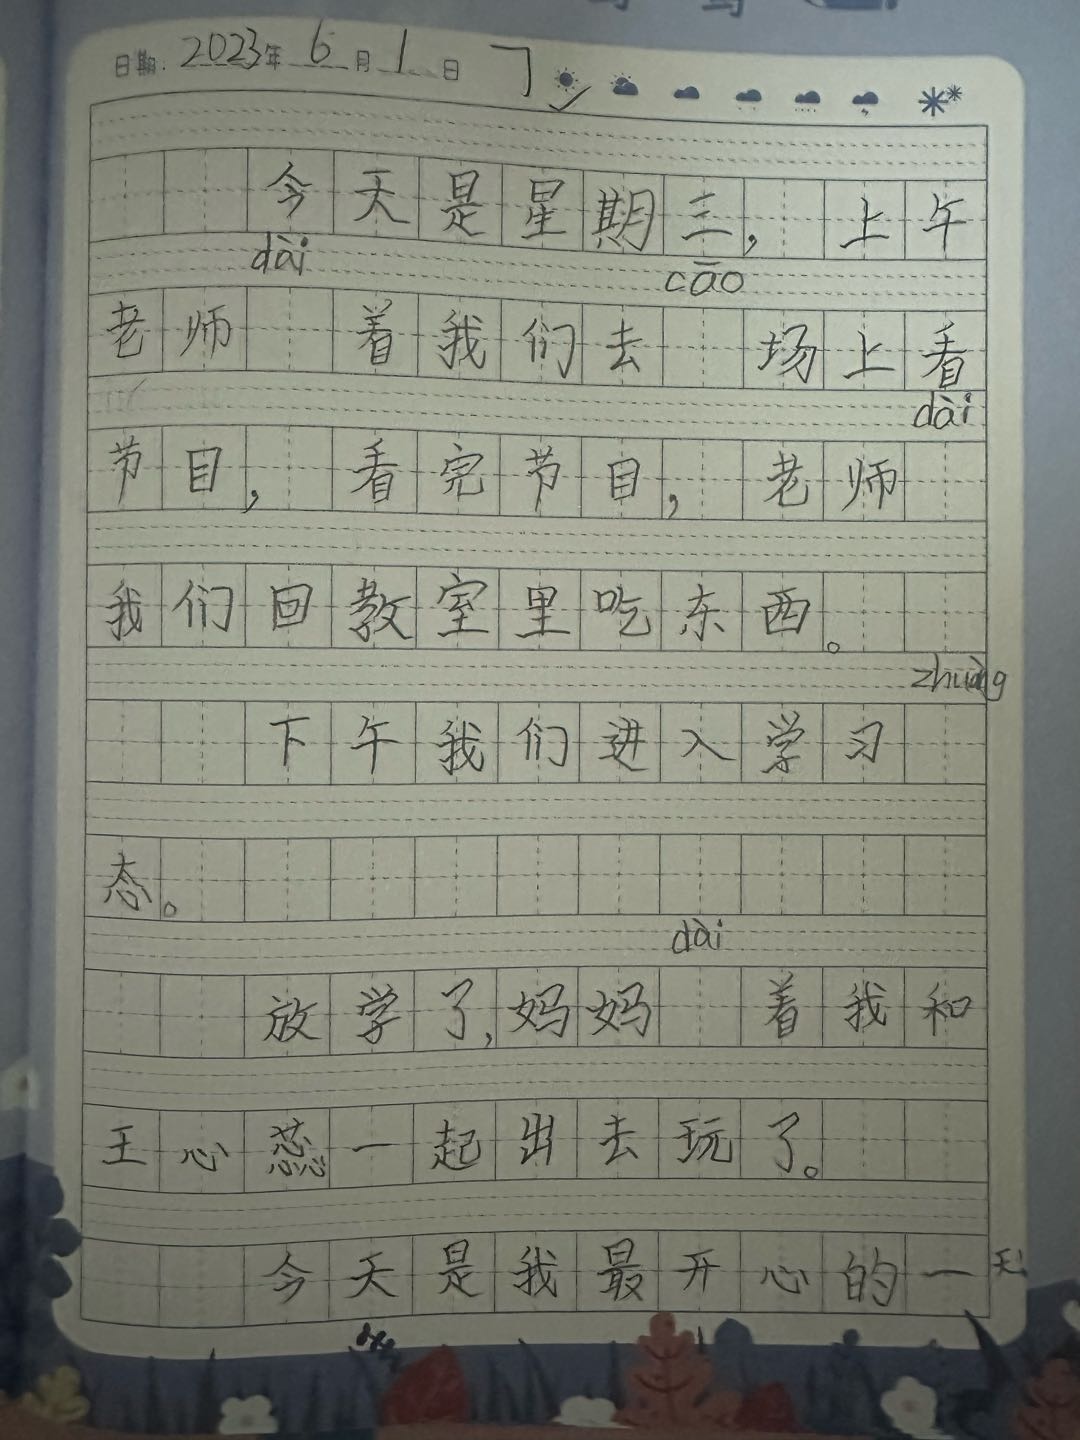 日期: 2023年 6月 1日
今天是星期三，上午
dài cāo
老师 着我们去 场上看
dài
节目，看完节目，老师
我们回教室里吃东西。
zhuàng
下午我们进入学习
态。
dài
放学了,妈妈 着我和
王心蕊一起出去玩了。
今天是我最开心的一天